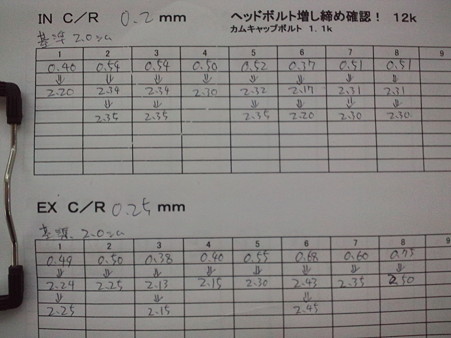 IN C/R 0.2 mm ヘッドボルト増し締め確認! 12k
カムキャップボルト 1.1k
基準 2.0シム
1 2 3 4 5 6 7 8 9
0.40 0.54 0.54 0.50 0.52 0.37 0.51 0.51
⇓ ⇓ ⇓ ⇓ ⇓ ⇓ ⇓ ⇓
2.20 2.34 2.34 2.30 2.32 2.17 2.31 2.31
⇓ ⇓ ⇓ ⇓ ⇓ ⇓
2.35 2.35 2.35 2.20 2.30 2.30
EX C/R 0.25 mm
基準 2.0シム
1 2 3 4 5 6 7 8 9
0.49 0.50 0.38 0.40 0.55 0.68 0.60 0.75
⇓ ⇓ ⇓ ⇓ ⇓ ⇓ ⇓ ⇓
2.24 2.25 2.13 2.15 2.30 2.43 2.35 2.50
⇓ ⇓ ⇓
2.25 2.15 2.45